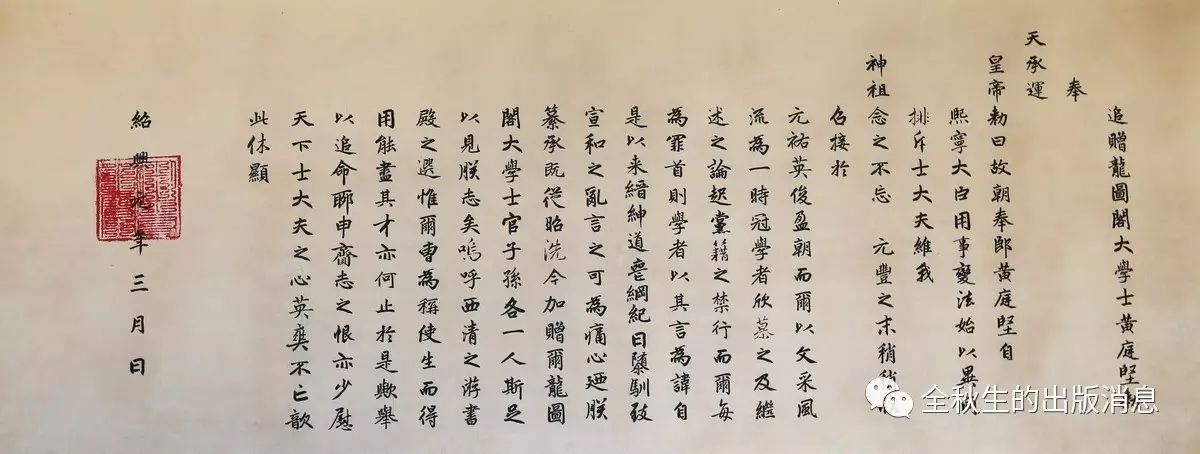 追贈龍圖閣大學士黃庭堅
奉
天承運
皇帝勅曰故朝奉郎黃庭堅自
熙寧大臣用事變法始以異
排斥士大夫維我
神祖念之不忘 元豐之末稍稍
召接於
元祐英俊盈朝而爾以文采風
流為一時冠學者欣慕之及繼
述之論起黨籍之禁行而爾每
為罪首則學者以其言為諱自
是以来縉紳道喪綱紀日隳馴致
宣和之亂言之可為痛心廼朕
纂承既從昭洗今加贈爾龍圖
閣大學士官子孫各一人斯足
以見朕志矣嗚呼西清之游書
殿之選惟爾曹為稱使生而得
用能盡其才亦何止於是歟舉
以追命聊申齎志之恨亦少慰
天下士大夫之心英爽不亡歆
此休顯
紹興 年三月日
全秋生的出版消息